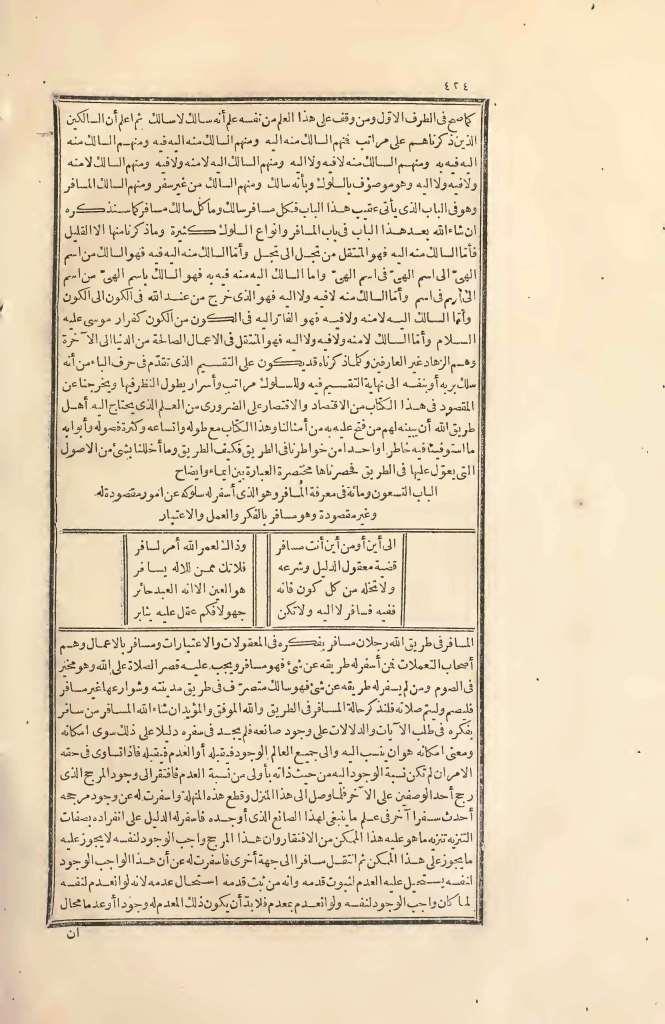 ٤٢٤
كما صح في الطرف الاول ومن وقف على هذا العلم من نفسه علم أنه سالك لا سالك ثم اعلم أن السالكين
الذين ذكرناهم على مراتب فمنهم السالك منه اليه ومنهم السالك منه اليه فيه ومنهم السالك منه
اليه فيه به ومنهم السالك منه لا فيه ولا اليه ومنهم السالك اليه لا منه ولا فيه ومنهم السالك لا منه
ولا فيه ولا اليه وهو موصوف بالسلوك وبأنه سالك ومنهم السالك من غير سفر ومنهم السالك المسافر
وهو في الباب الذي يأتي عقيب هذا الباب فكل مسافر سالك وما كل سالك مسافر كما سنذكره
ان شاء الله بعد هذا الباب في باب المسافر وانواع السلوك كثيرة وما ذكرنا منها الا القليل
فأمّا السالك منه اليه فهو المنتقل من تجل الى تجل وأمّا السالك منه اليه فيه فهو السالك من اسم
الهيّ الى اسم الهيّ في اسم الهيّ واما السالك اليه منه فيه به فهو السالك باسم الهيّ من اسم
الى اسم في اسم وأمّا السالك منه لا فيه ولا اليه فهو الذي خرج من عند الله في الكون الى الكون
وأمّا السالك اليه لا منه ولا فيه فهو الفارّ اليه في الكون من الكون كفرار موسى عليه
السلام وأمّا السالك لا منه ولا فيه ولا اليه فهو المنتقل في الاعمال الصالحة من الدنيا الى الآخرة
وهم الزهاد غير العارفين وكلما ذكرناه قد يكون على التقسيم الذي تقدّم في حرف الباء من أنه
سلك بربه أو بنفسه الى نهاية التقسيم فيه وللسلوك مراتب وأسرار يطول النظر فيها ويخرجنا عن
المقصود في هذا الكتاب من الاقتصاد والاقتصار على الضروري من العلم الذي يحتاج اليه أهل
طريق الله أن يبينه لهم من فتح عليه به من أمثالنا وهذا الكتاب مع طوله واتساعه وكثرة فصوله وأبوابه
ما استوفينا فيه خاطرا واحدا من خواطرنا في الطريق فكيف الطريق وما أخللنا بشئ من الاصول
التي يعوّل عليها في الطريق فحصرناها مختصرة العبارة بين ايماء وايضاح
الباب التسعون ومائة في معرفة المسافر وهو الذي أسفر له سلوكه عن امور مقصودة له
وغير مقصودة وهو مسافر بالفكر والعمل والاعتبار
الى أين أو من أين أنت مسافر وذاك لعمر الله أمر لسافر
قضية معقول الدليل وشرعه فلا تك ممن للاله يسافر
ولا تخله من كل كون فانه هو العين الا انه العبد حائر
ففيه فسافر لا اليه ولا تكن جهولا فكم عقل عليه يثابر
المسافر في طريق الله رجلان مسافر بفكره في المعقولات والاعتبارات ومسافر بالاعمال وهم
أصحاب التعملات فمن أسفر له طريقه عن شئ فهو مسافر ويجب عليه قصر الصلاة على الله وهو مخير
في الصوم ومن لم يسفر له طريقه عن شئ فهو سالك متصرّف في طريق مدينته وشوارعها غير مسافر
فليصم وليتم صلاته فلنذكر حالة المسافر في الطريق والله الموفق والمؤيد ان شاء الله المسافر من سافر
بفكره في طلب الآيات والدلالات على وجود صانعه فلم يجد في سفره دليلا على ذلك سوى امكانه
ومعنى امكانه هو ان ينسب اليه والى جميع العالم الوجود فيقبله أو العدم فيقبله فاذا تساوى في حقه
الامران لم تكن نسبة الوجود اليه من حيث ذاته بأولى من نسبة العدم فافتقر الى وجود المرجح الذي
رجح أحد الوصفين على الآخر فلما وصل الى هذا المنزل وقطع هذه المنهلة واسفرت له عن وجود مرجحه
أحدث سفرا آخر في علم ما ينبغي لهذا الصانع الذي أوجده فاسفر له الدليل على انفراده بصفات
التنزيه تنزيه ما هو عليه هذا الممكن من الافتقار وان هذا المرجح واجب الوجود لنفسه لا يجوز عليه
ما يجوز على هذا الممكن ثم انتقل سافرا الى جهة أخرى فاسفرت له عن أن هذا الواجب الوجود
لنفسه يستحيل عليه العدم لثبوت قدمه وانه من ثبت قدمه استحال عدمه لانه لو انعدم لنفسه
لما كان واجب الوجود لنفسه ولو انعدم بمعدم فلا بدّ أن يكون ذلك المعدم له وجودا أو عدما محال
ان